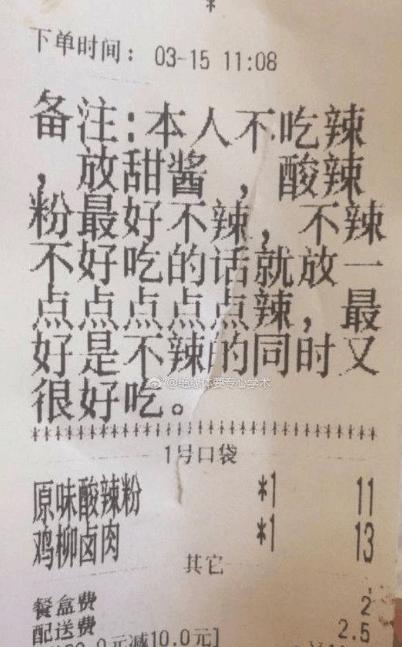 *
下单时间: 03-15 11:08
备注:本人不吃辣
,放甜酱,酸辣
粉最好不辣,不辣
不好吃的话就放一
点点点点点辣,最
好是不辣的同时又
很好吃。
********************************
1号口袋
原味酸辣粉 *1 11
鸡柳卤肉 *1 13
其它
餐盒费 2
配送费 2.5
0元减10.0元]